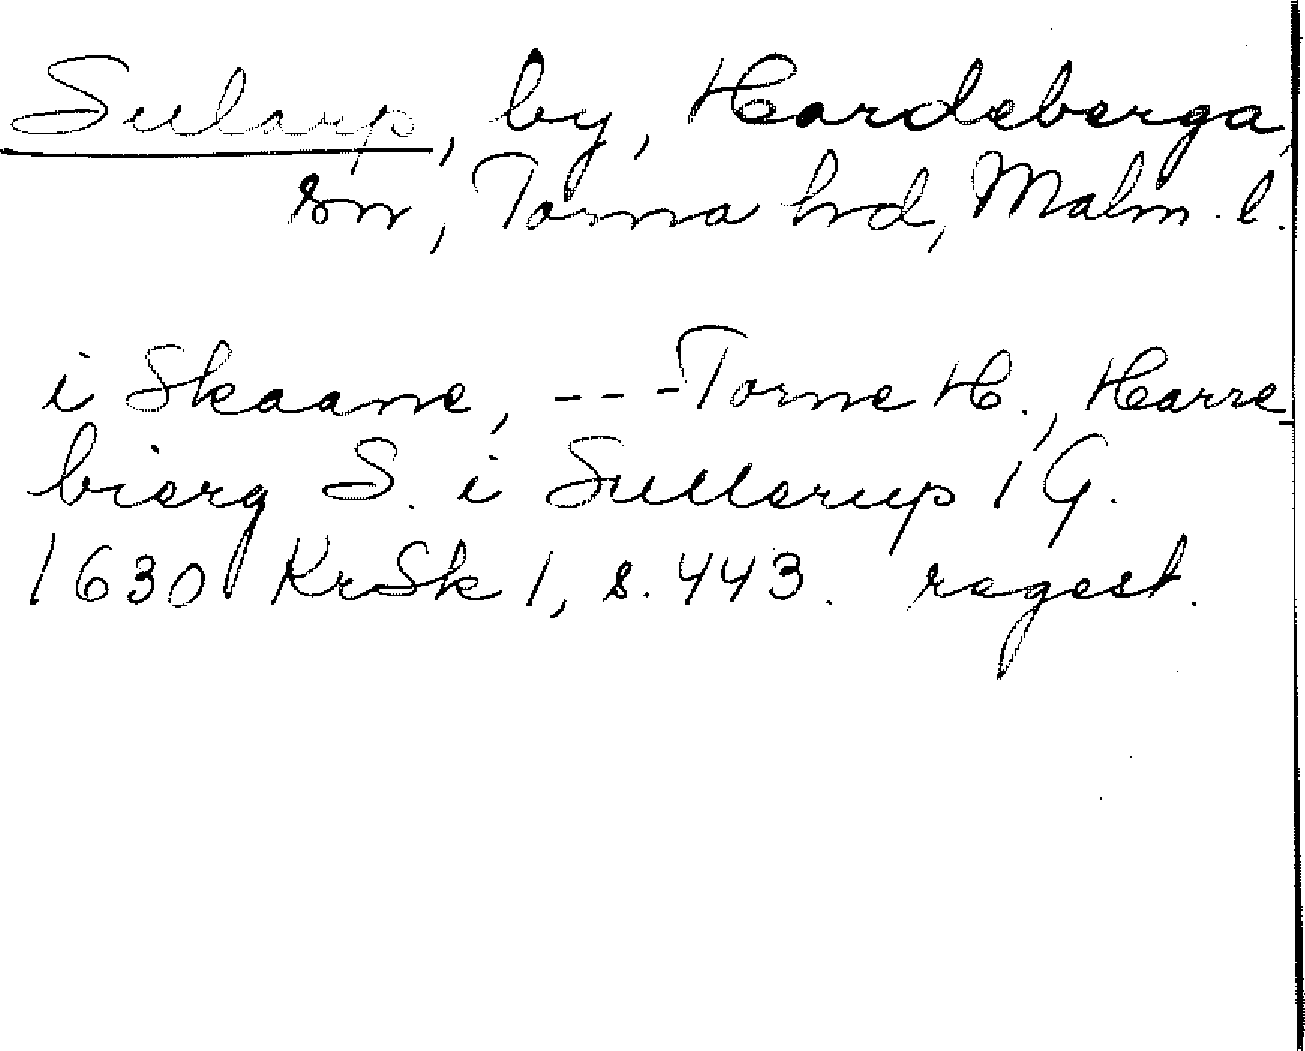 Sularp, by, Hardeberga,
sn, Torna hrd, Malm. l.
i Skaane, --- Torne H., Harre-
bierg S. i Sullerup 1 G.
1630 KrSk 1, s. 443. regest.